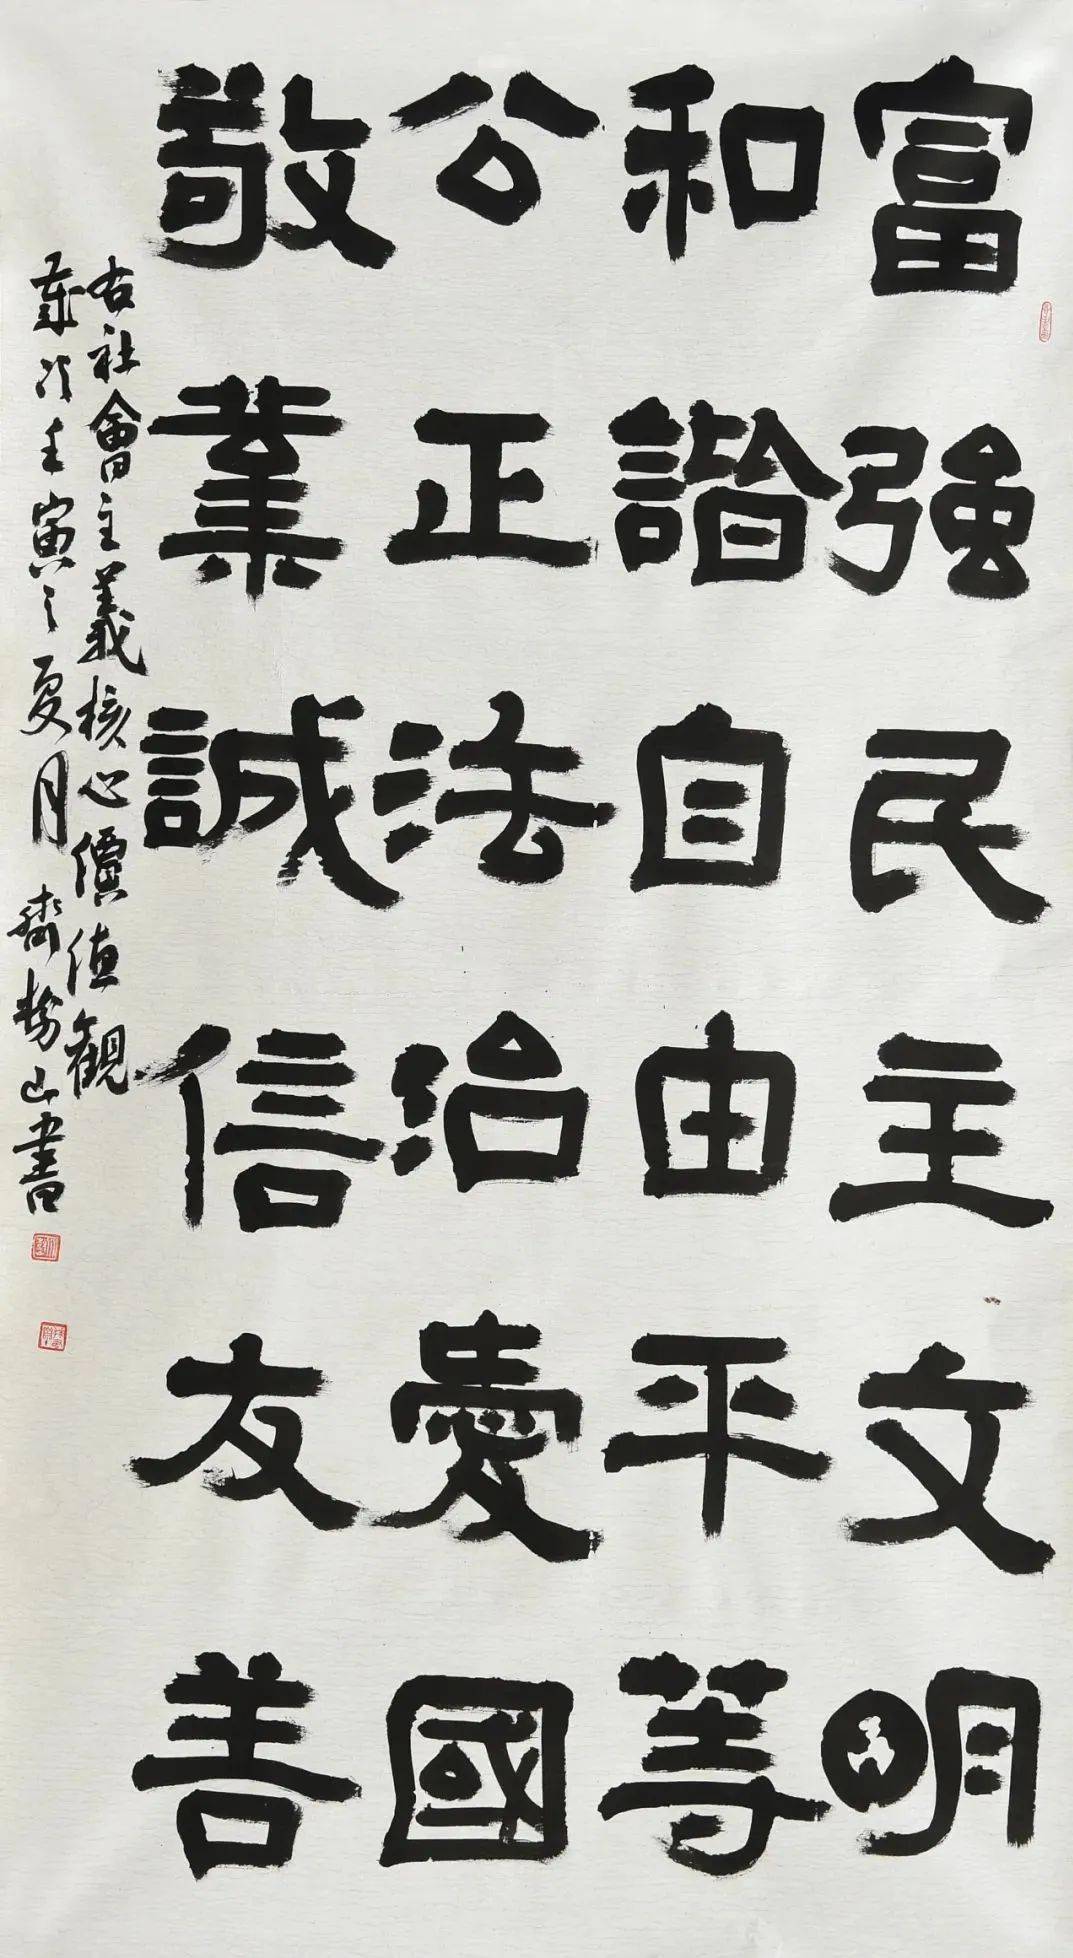 富強民主文明
和諧自由平等
公正法治愛國
敬業誠信友善
右社會主義核心價值觀
歲次壬寅之夏月 山書